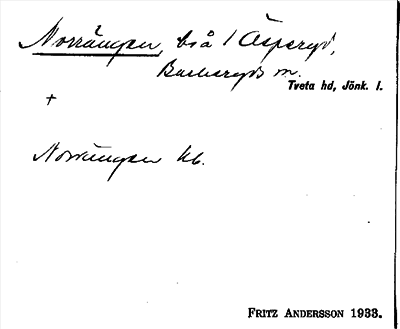 Norrängen, bså / Äsperyd,
Barkeryds sn.
Tveta hd, Jönk. l.
+
Norrängen kb.
FRITZ ANDERSSON 1933.